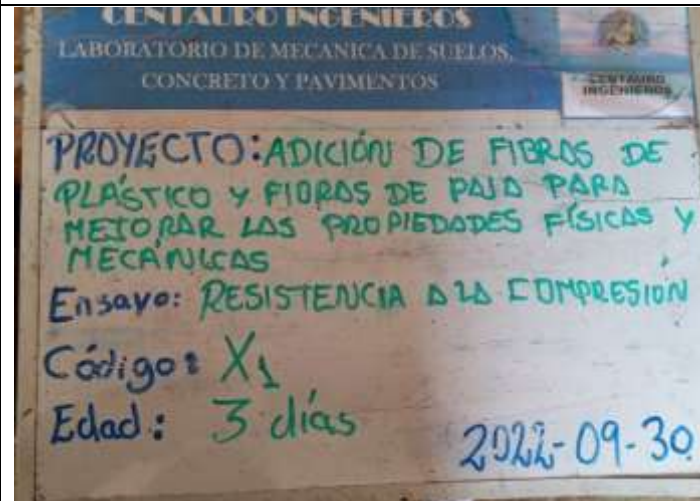 CENTAURO INGENIEROS
LABORATORIO DE MECANICA DE SUELOS,
CONCRETO Y PAVIMENTOS
CENTAURO
INGENIEROS
PROYECTO: ADICIÓN DE FIBRAS DE
PLÁSTICO Y FIBRAS DE PAJA PARA
MEJORAR LAS PROPIEDADES FÍSICAS Y
MECÁNICAS
Ensayo: RESISTENCIA A LA COMPRESIÓN
Código: X1
Edad: 3 días
2022-09-30